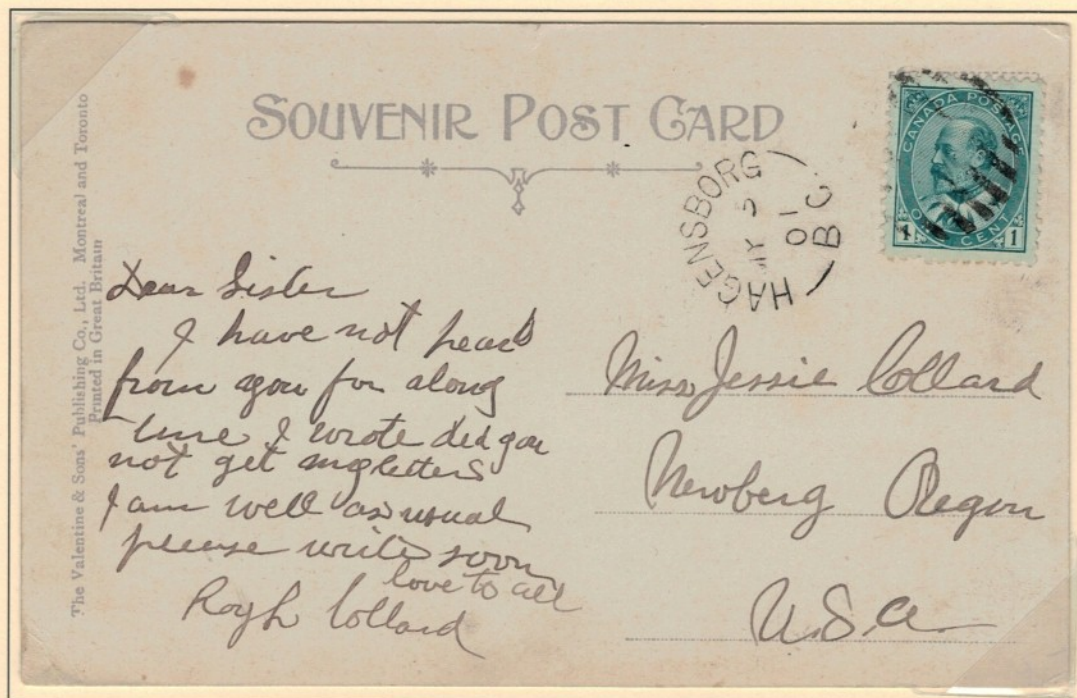 SOUVENIR POST CARD
The Valentine & Sons' Publishing Co., Ltd. Montreal and Toronto
Printed in Great Britain
HAGENSBORG
MY 5
01
B C.
CANADA POSTAGE
1 1
ONE CENT
Dear Sister
I have not heard
from you for along
time I wrote did you
not get my letters
I am well as usual
please write soon
love to all
Collard
Miss Jessie Collard
Newberg Oregon
U.S.A.